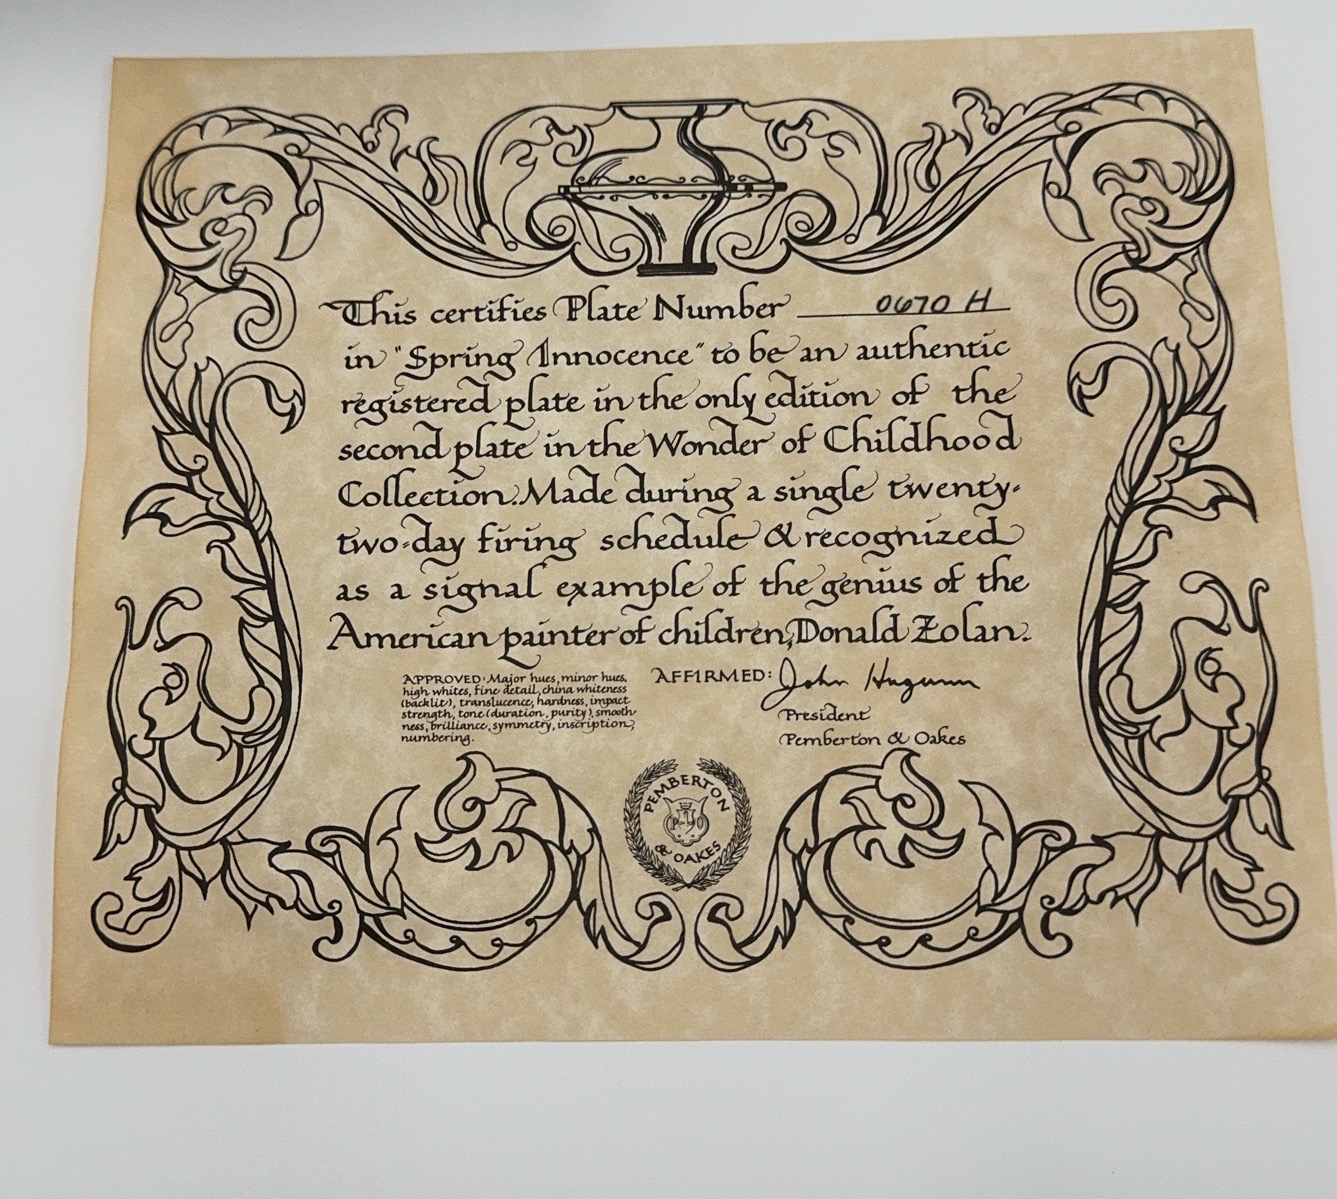 This certifies Plate Number 0670 H
in "Spring Innocence" to be an authentic
registered plate in the only edition of the
second plate in the Wonder of Childhood
Collection. Made during a single twenty-
two-day firing schedule & recognized
as a signal example of the genius of the
American painter of children, Donald Zolan.
APPROVED: Major hues, minor hues,
high whites, fine detail, china whiteness
(backlit), translucence, hardness, impact
strength, tone (duration, purity), smooth
ness, brilliance, symmetry, inscription,
numbering.
AFFIRMED: John
President
Pemberton & Oakes
PEMBERTON
& OAKES